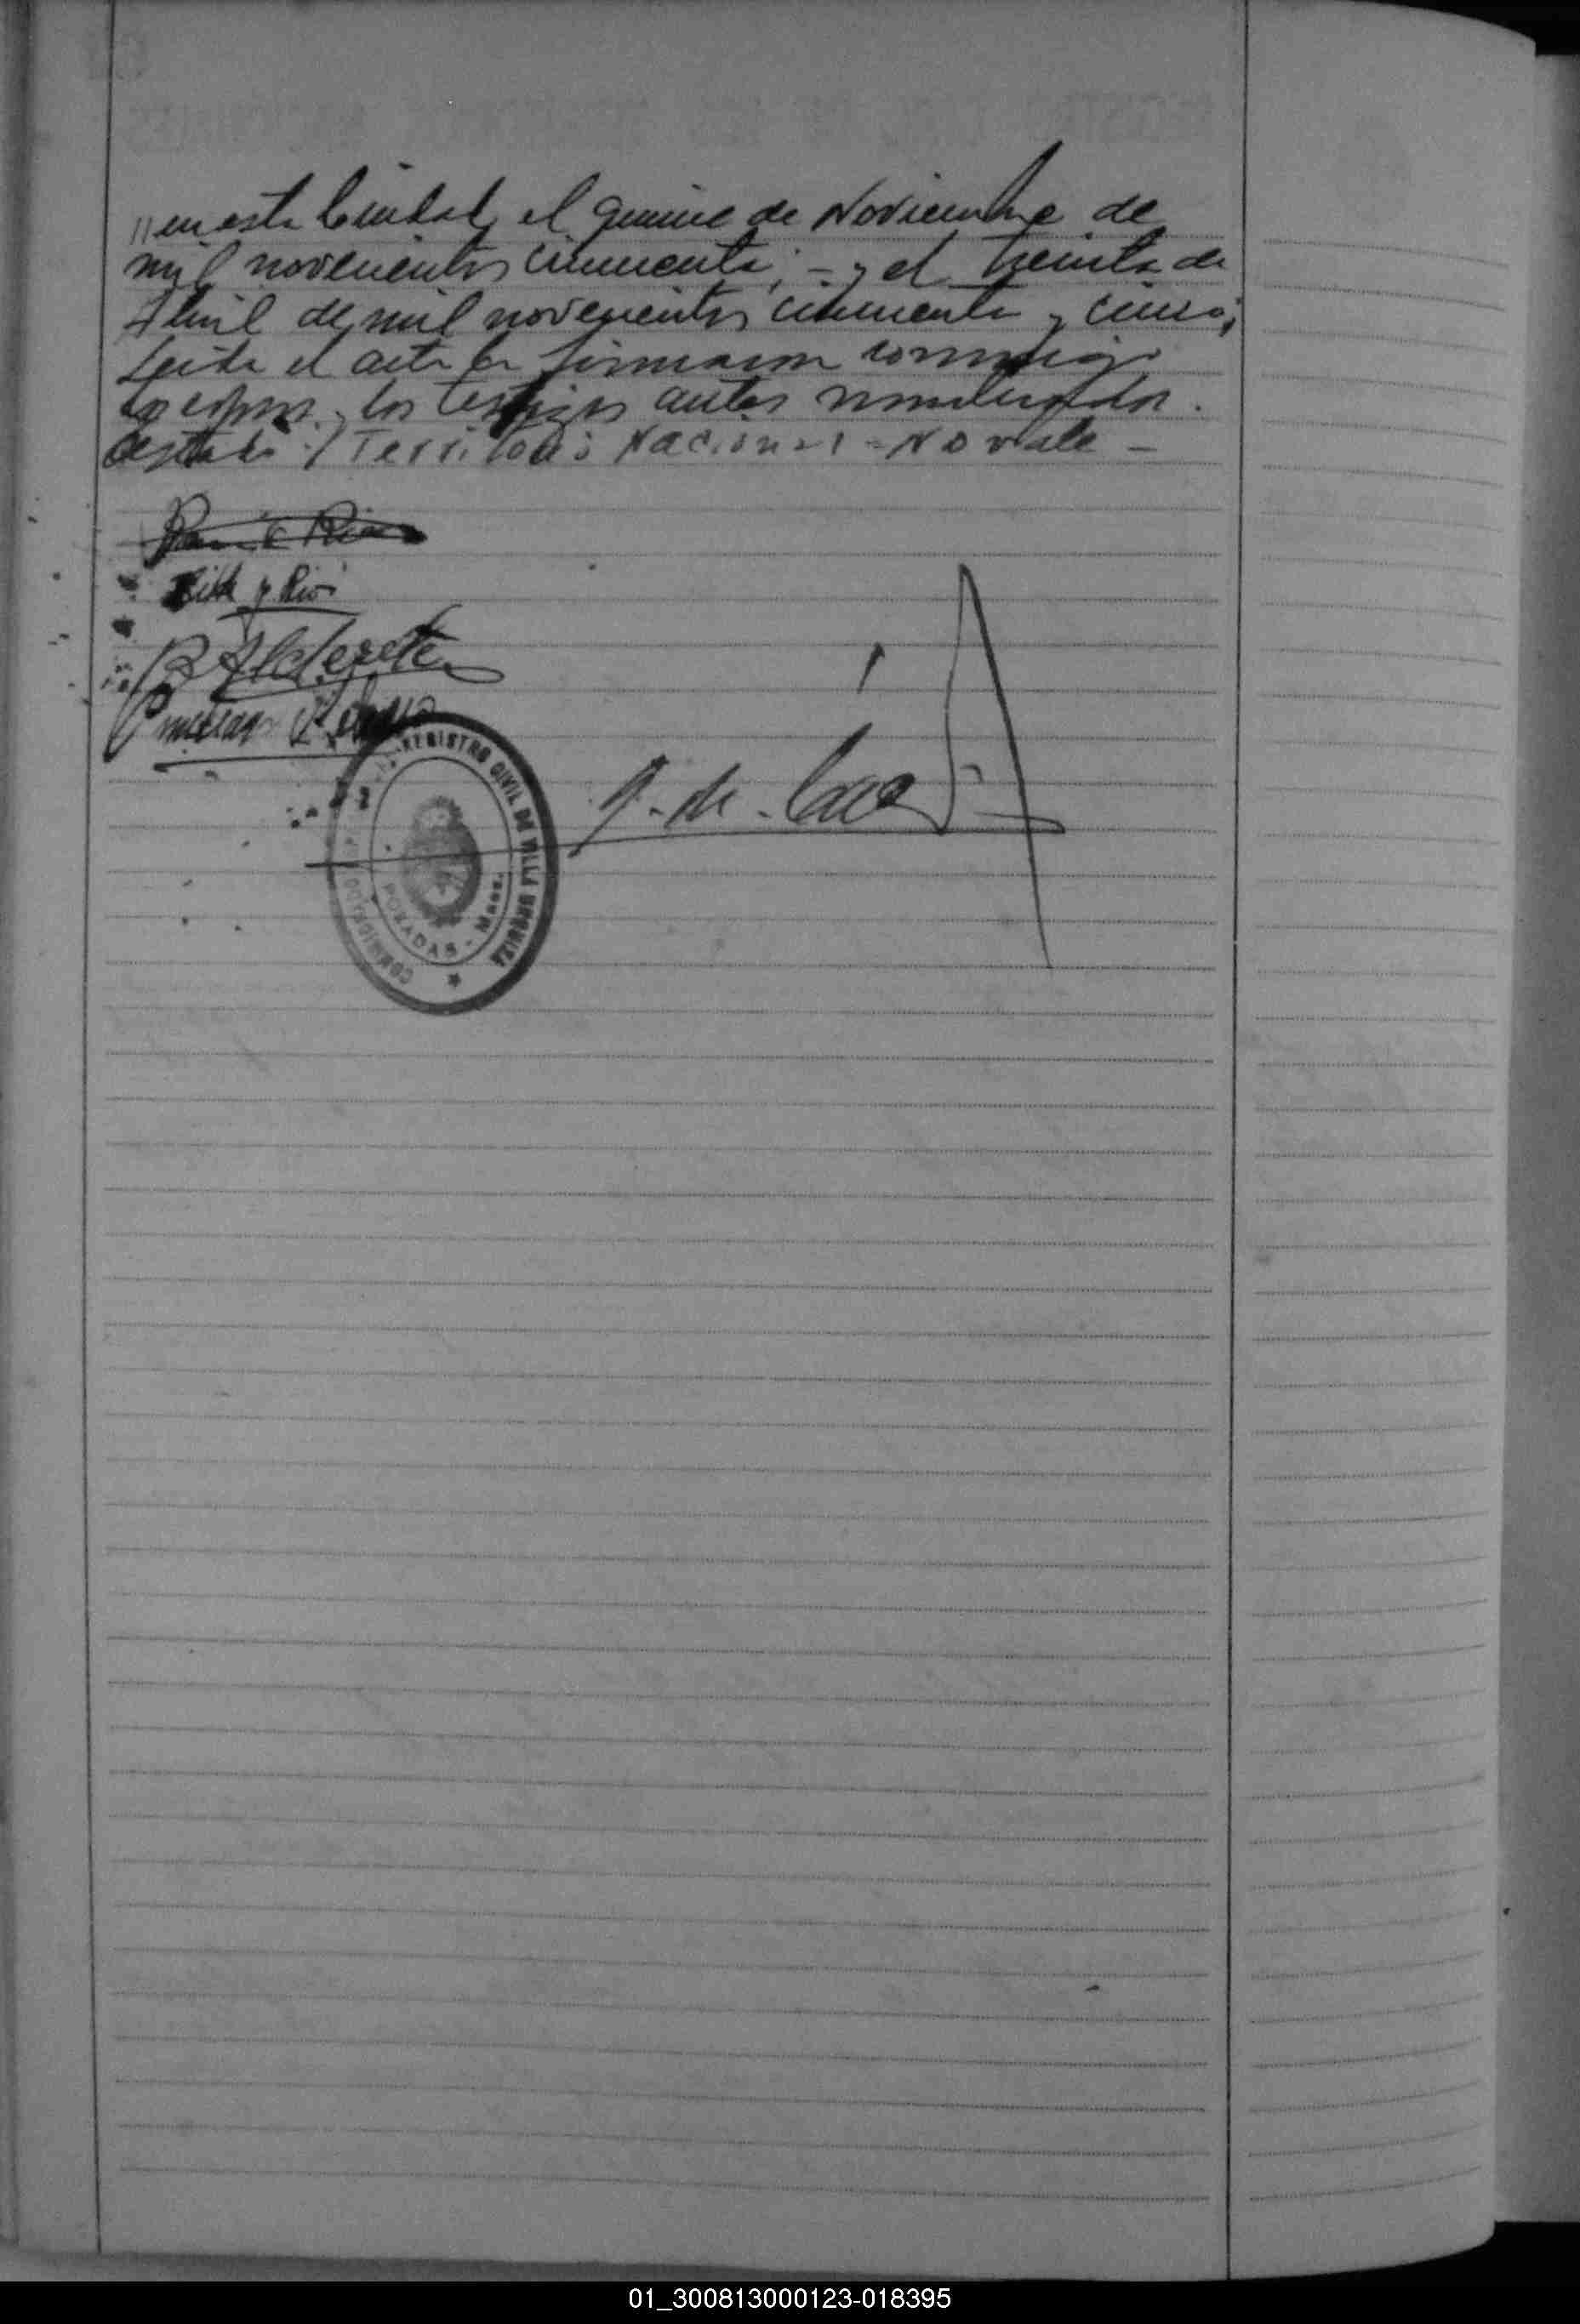 "en esta Ciudad, el quince de Noviembre de
mil novecientos cincuenta; - y el treinta de
Abril de mil novecientos cincuenta y cinco;
Leída el acta la firmaron conmigo
los esposos y los testigos antes nombrados.
Testado:/ Territorio Nacional - No vale -
B Alderete
REGISTRO CIVIL DE VILLA URQUIZA
POSADAS - Mnes.
01_300813000123-018395